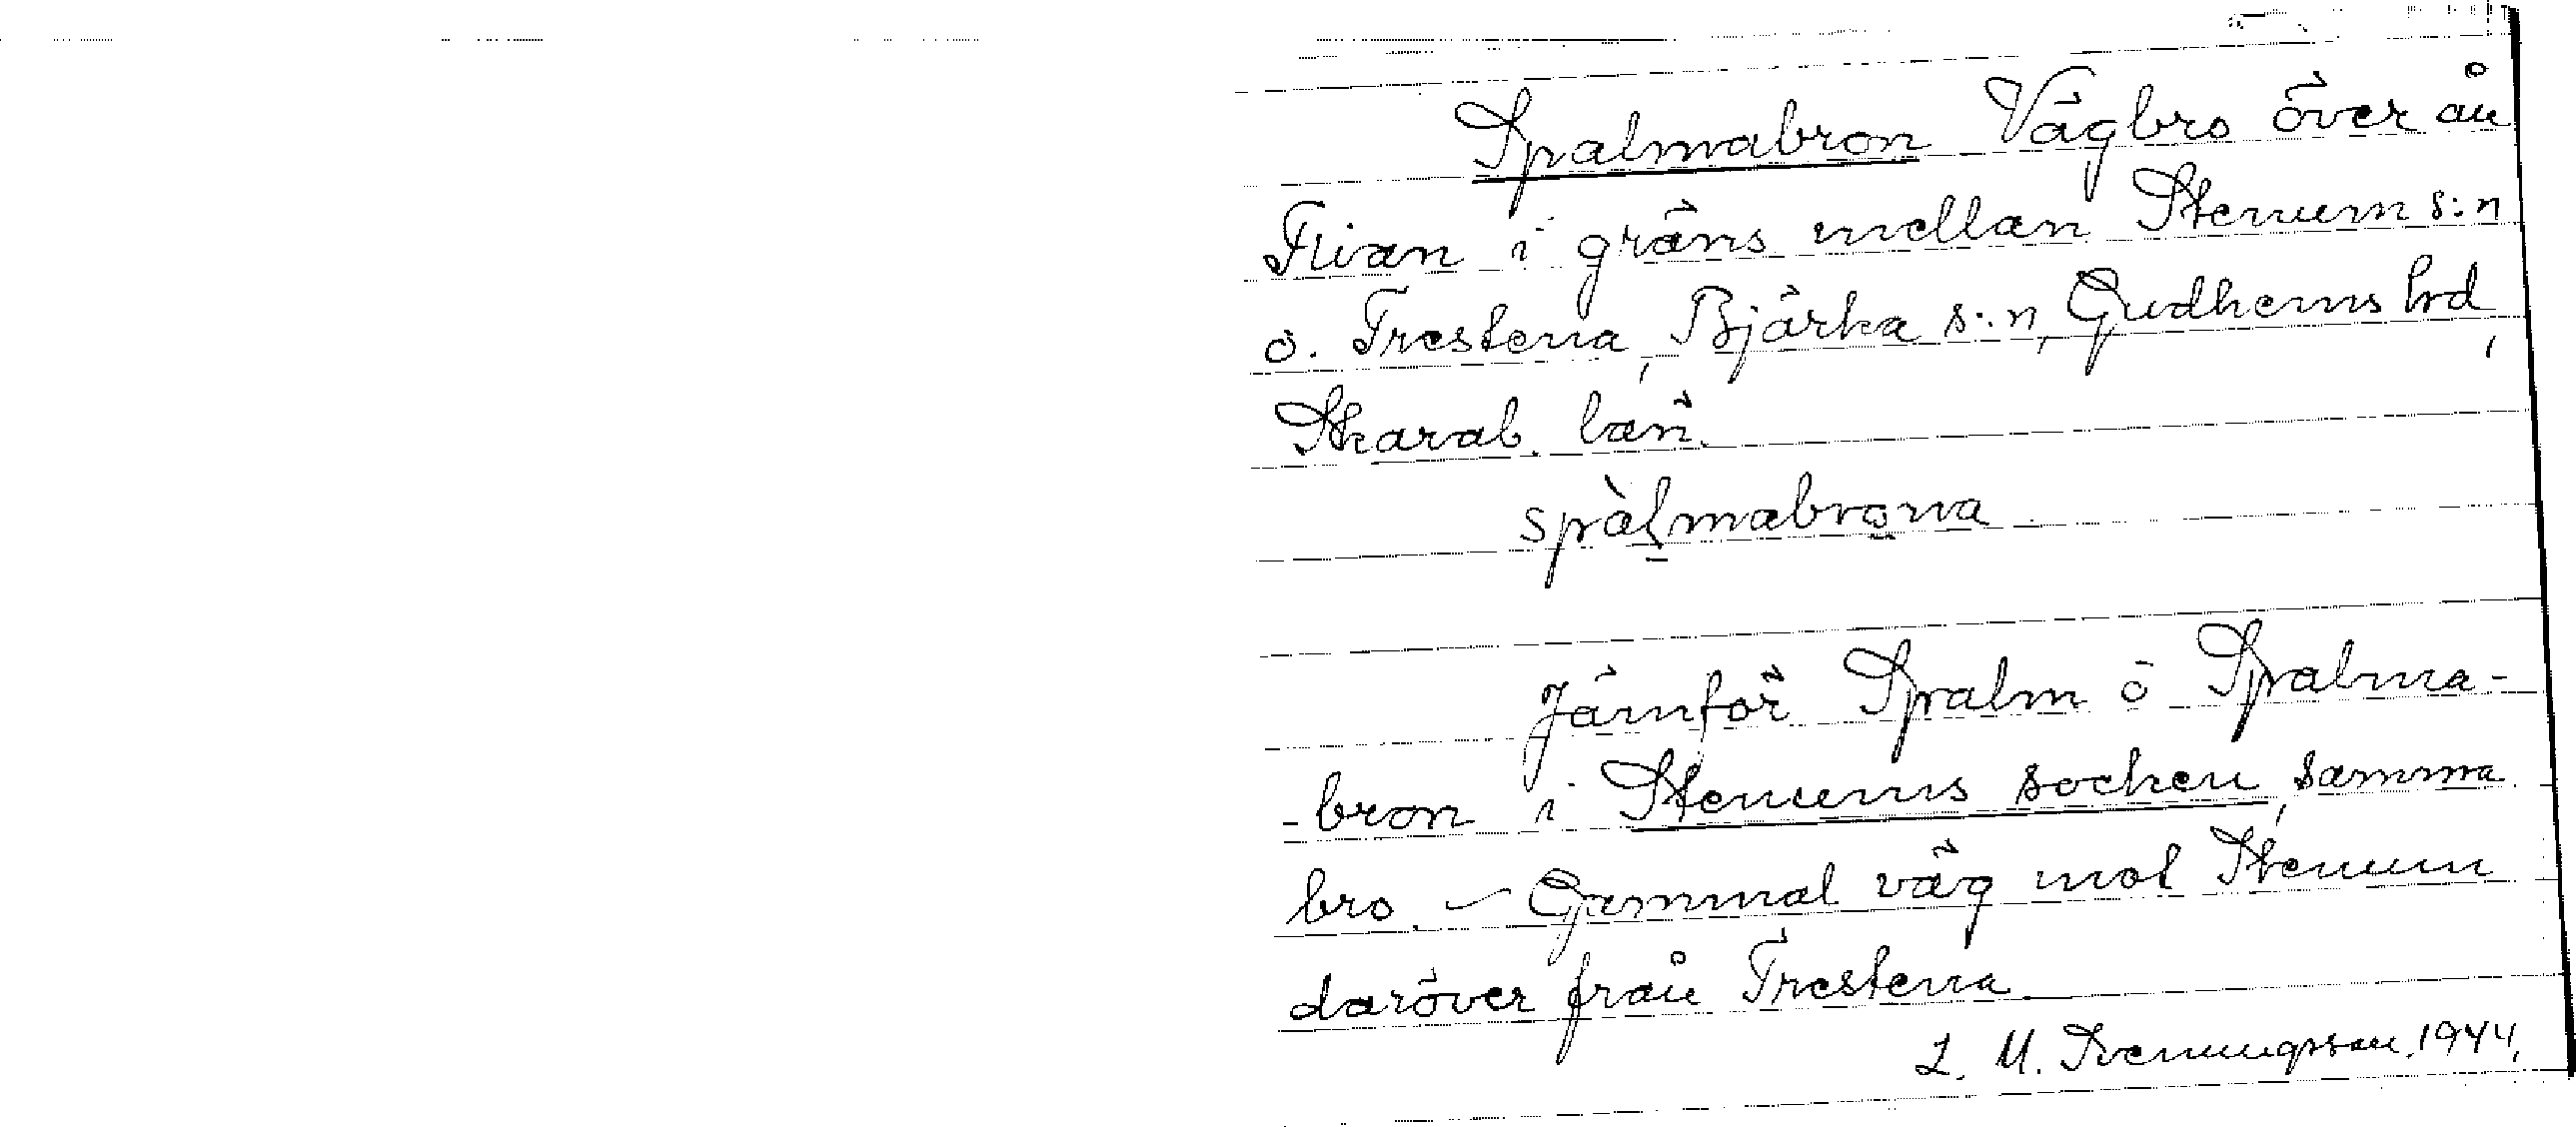 Spalmabron Vägbro över ån
Flian i gräns mellan Stenum s:n
o. Trestena, Bjärka s:n, Gudhems hd,
Skarab. län.
spàlmabrona
Jämför Spalm o Spalma-
-bron i Stenums socken, samma
bro. – Gammal väg mot Stenum
daröver från Trestena
L. M. Svenungsson. 1944.